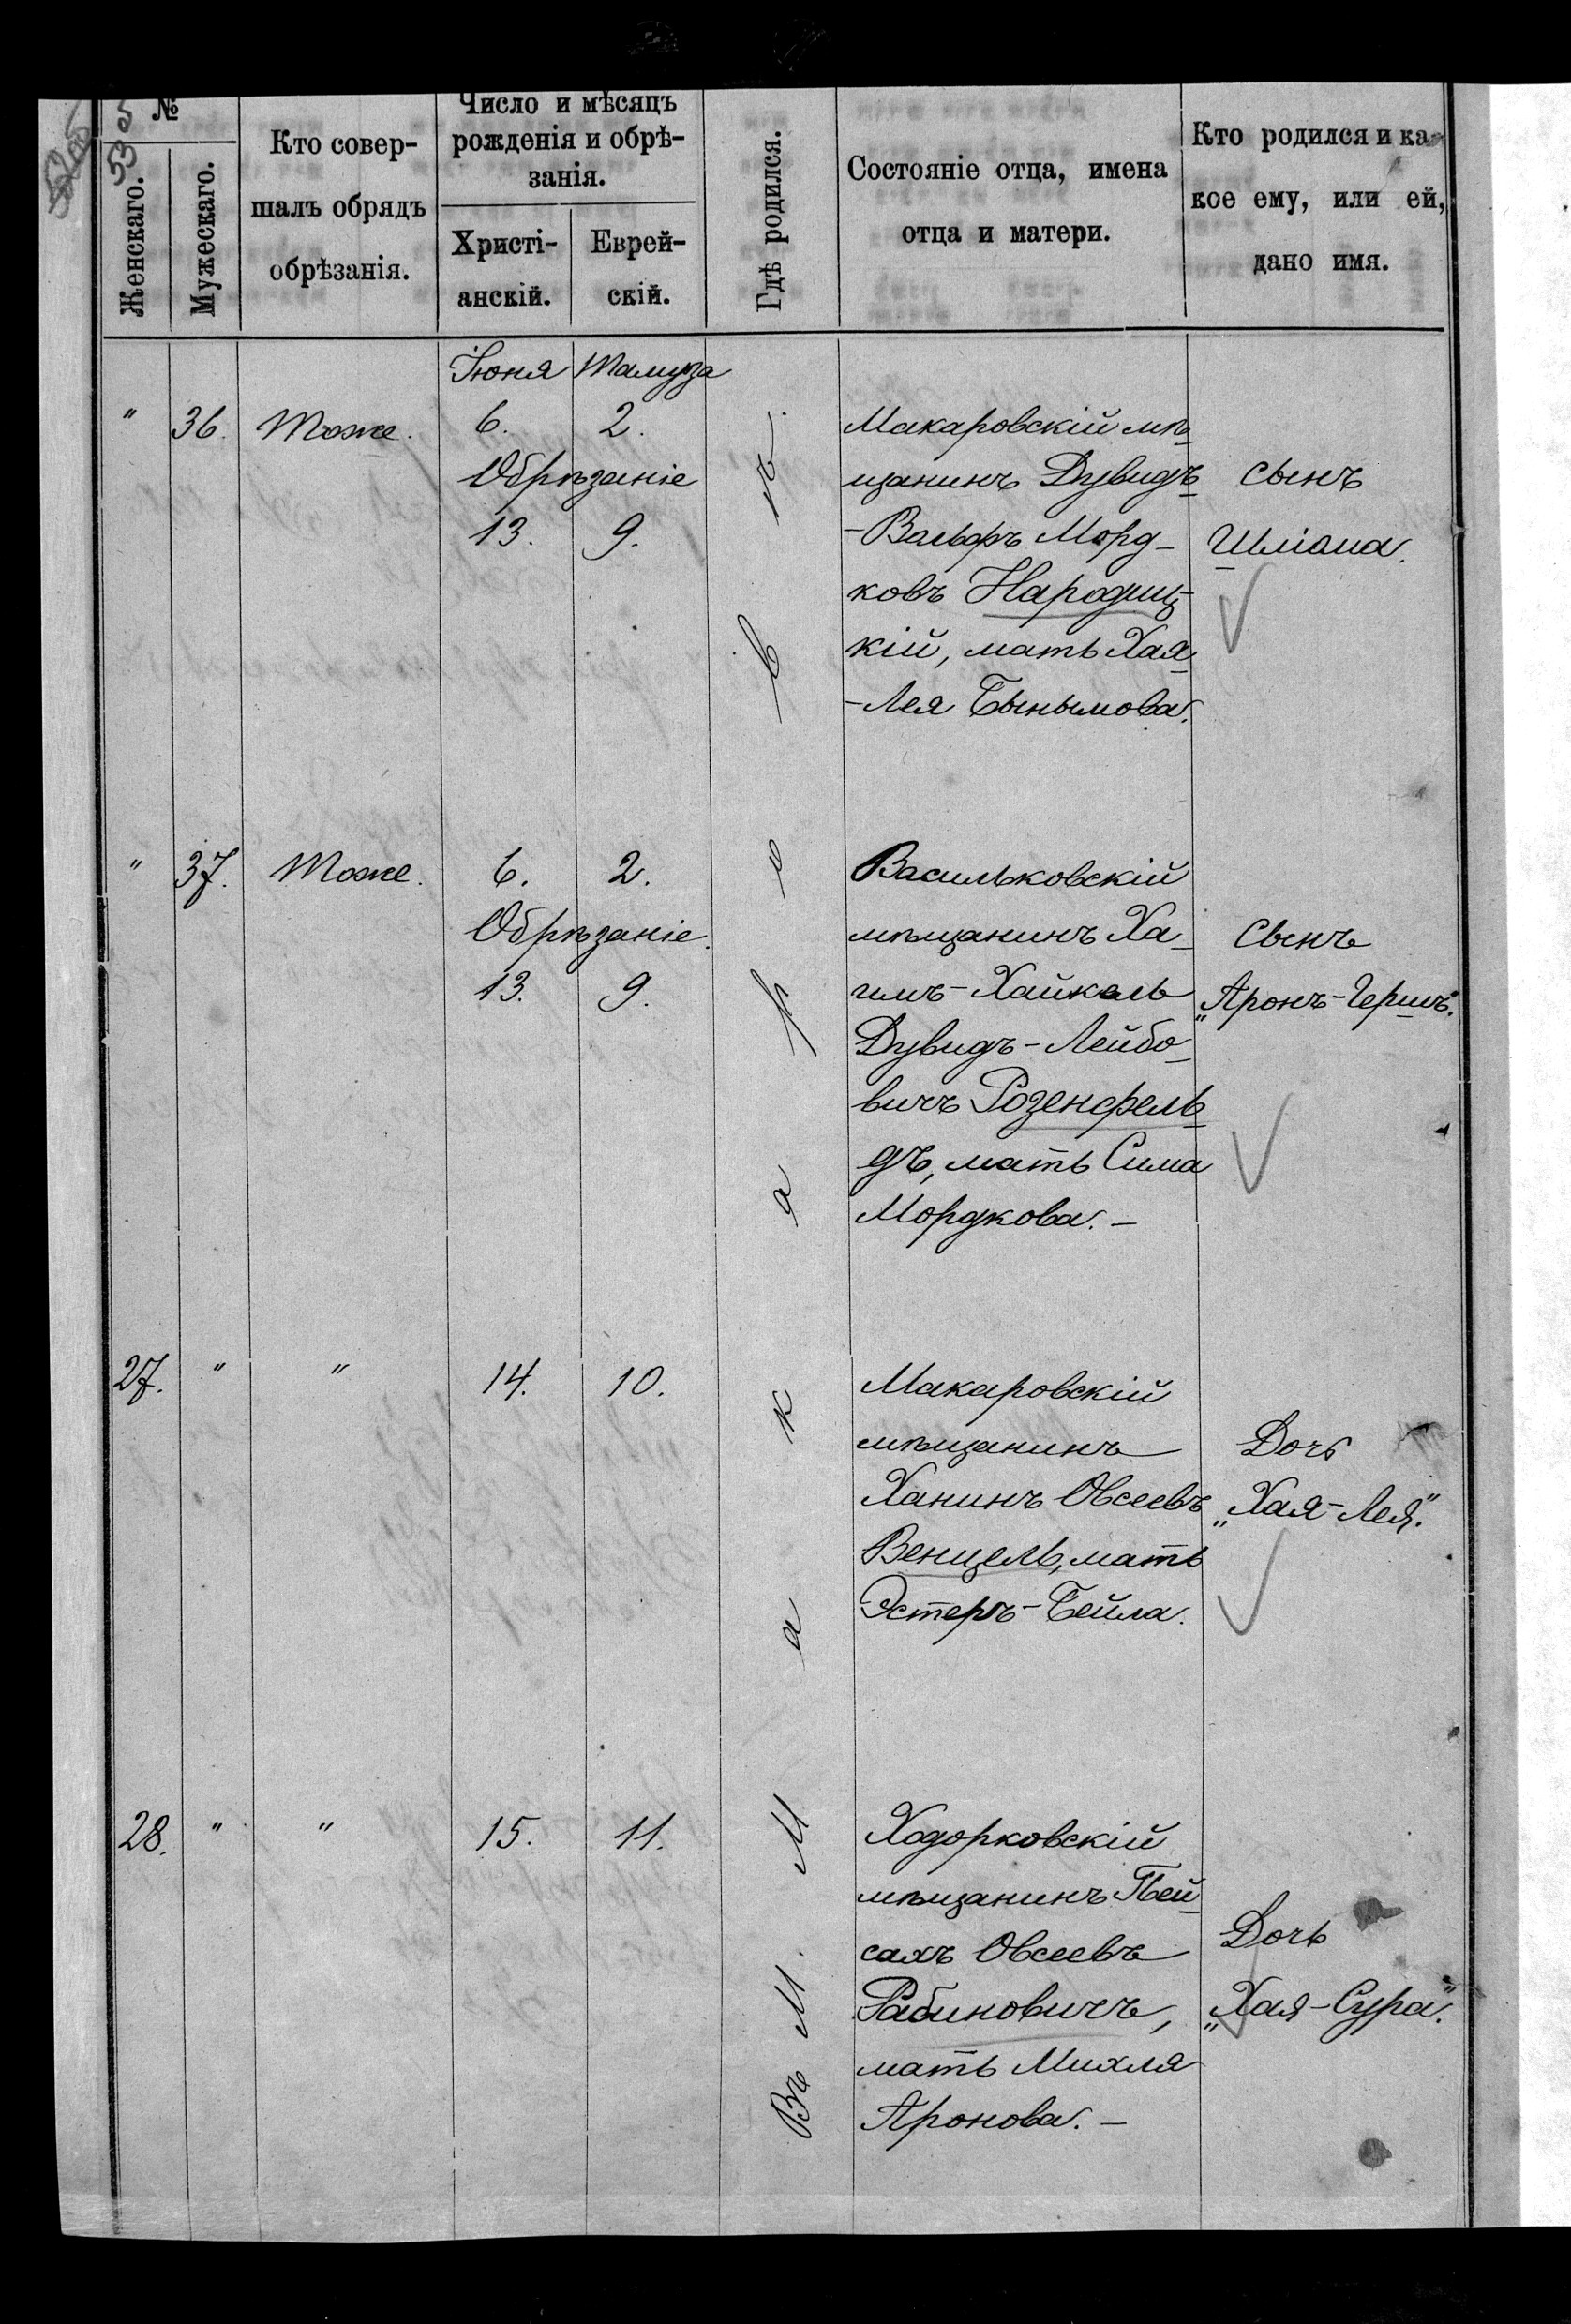 №
Женскаго.
Мужескаго.
Кто совер-
шалъ обрядъ
обрѣзанія.
Число и мѣсяцъ
рожденія и обрѣ-
занія.
Христі-
анскій.
Еврей-
скій.
Гдѣ родился.
Состояніе отца, имена
отца и матери.
Кто родился и ка-
кое ему, или ей,
дано имя.
Іюня Тамуза
" 36. Тоже. 6. 2.
Обрѣзаніе
13. 9.
Макаровскій мѣ
щанинъ Дувидъ
-Вольфъ Морд-
ковъ Народиц-
кій, мать Хая
-Лея Бынымова.
сынъ
Шліома.
" 37. Тоже. 6. 2.
Обрѣзаніе.
13. 9.
Васильковскій
мѣщанинъ Ха-
имъ-Хайкель
Дувидъ-Лейбо-
вичъ Розенфель
дъ, мать Сима
Мордкова.-
Сынъ
„Аронъ-Гершъ".
27. " " 14. 10.
Макаровскій
мѣщанинъ
Ханинъ Овсеевъ
Венцель, мать
Эстеръ-Бейла.
Дочь
„Хая-Лея".
28. " " 15. 11.
Ходорковскій
мѣщанинъ Пей
сахъ Овсеевъ
Рабиновичъ,
мать Михля
Аронова.-
Дочь
„Хая-Сура".
Въ М. Макаровѣ.